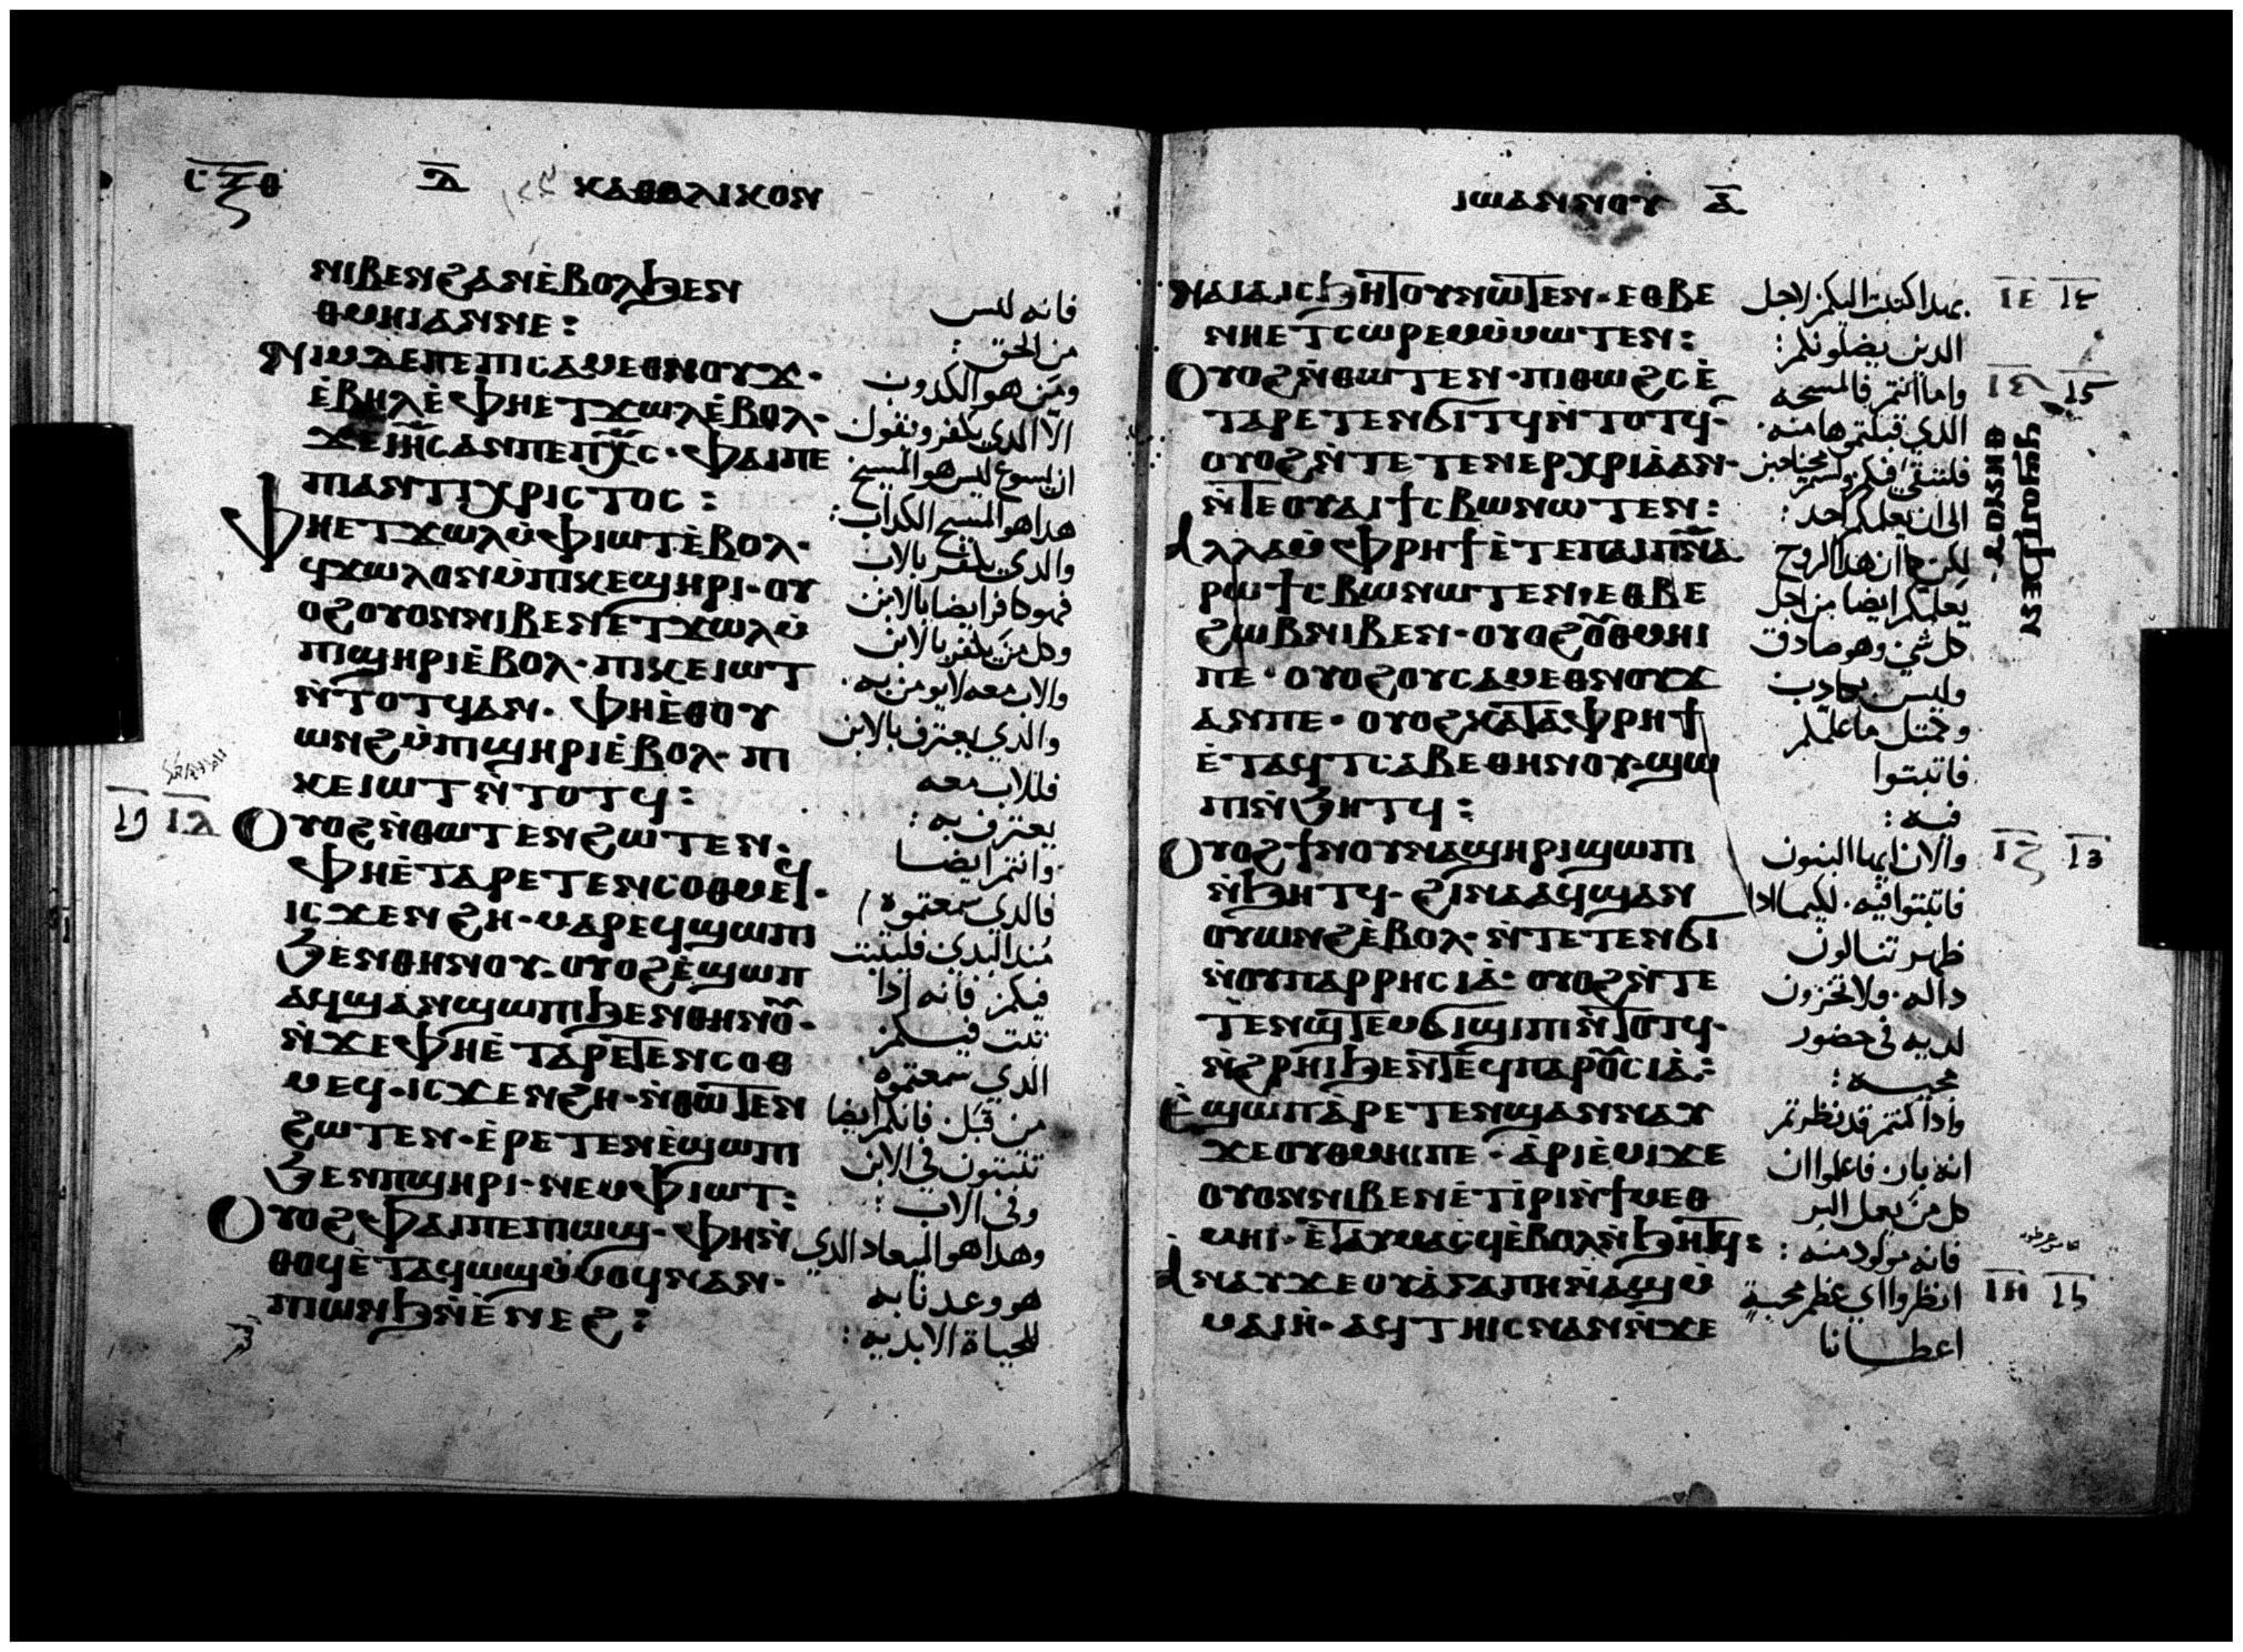 ⲥⲝⲑ
ⲁ ⲕⲁⲑⲟⲗⲓⲕⲟⲛ
ⲛⲓⲃⲉⲛϩⲁⲛⲉ̀ⲃⲟⲗϧⲉⲛ
ⲑⲙⲏⲓⲁⲛⲛⲉ:
ⲛⲓⲙⲇⲉⲡⲉⲡⲓⲥⲁⲙⲉⲑⲛⲟⲩϫ·
ⲉ̀ⲃⲏⲗⲉ̀ⲫⲏⲉⲧϫⲱⲗⲉ̀ⲃⲟⲗ·
ϫⲉⲓⲏ̅ⲥ̅ⲁⲛⲡⲉⲡⲭ̅ⲥ̅· ⲫⲁⲓⲡⲉ
ⲡⲓⲁⲛⲧⲓⲭⲣⲓⲥⲧⲟⲥ:
ⲫⲏⲉⲧϫⲱⲗⲙ̀ⲫⲓⲱⲧⲉ̀ⲃⲟⲗ·
ϥϫⲱⲗⲟⲛⲙ̀ⲡⲓⲕⲉϣⲏⲣⲓ· ⲟⲩ
ⲟϩⲟⲩⲟⲛⲛⲓⲃⲉⲛⲉⲧϫⲱⲗⲙ̀
ⲡⲓϣⲏⲣⲓⲉ̀ⲃⲟⲗ· ⲡⲓⲕⲉⲓⲱⲧ
ⲛ̀ⲧⲟⲧϥⲁⲛ· ⲫⲏⲉ̀ⲑⲟⲩ
ⲱⲛϩⲙ̀ⲡⲓϣⲏⲣⲓⲉ̀ⲃⲟⲗ· ⲡⲓ
ⲕⲉⲓⲱⲧⲛ̀ⲧⲟⲧϥ:
ⲟⲩⲟϩⲛ̀ⲑⲱⲧⲉⲛϩⲱⲧⲉⲛ·
ⲫⲏⲉ̀ⲧⲁⲣⲉⲧⲉⲛⲥⲟⲑⲙⲉϥ·
ⲓⲥϫⲉⲛϩⲏ· ⲙⲁⲣⲉϥϣⲱⲡⲓ
ϧⲉⲛⲑⲏⲛⲟⲩ· ⲟⲩⲟϩⲉ̀ϣⲱⲡ
ⲁϥϣⲁⲛϣⲱⲡⲓϧⲉⲛⲑⲏⲛⲟⲩ·
ⲛ̀ϫⲉⲫⲏⲉ̀ⲧⲁⲣⲉⲧⲉⲛⲥⲟⲑ
ⲙⲉϥ· ⲓⲥϫⲉⲛϩⲏ· ⲛ̀ⲑⲱⲧⲉⲛ
ϩⲱⲧⲉⲛ· ⲉ̀ⲣⲉⲧⲉⲛⲉ̀ϣⲱⲡⲓ
ϧⲉⲛⲡϣⲏⲣⲓ· ⲛⲉⲙⲫⲓⲱⲧ:
ⲟⲩⲟϩⲫⲁⲓⲡⲉⲡⲓⲱϣ· ⲫⲏⲛ̀
ⲑⲟϥⲉ̀ⲧⲁϥⲱϣⲙ̀ⲙⲟϥⲛⲁⲛ·
ⲡⲓⲱⲛϧⲛ̀ⲉ̀ⲛⲉϩ:
ⲓⲇ
فانه ليس
من الحق :
ومن هو الكدوب
الا الدي يكفر ويقول
ان يسوع ليس هو المسيح
هدا هو المسيح الكداب :
والدي يكفر بالاب
فهو كافر ايضا بالابن
وكل من يكفر بالابن
والاب معه لا يومن به .
والدي يعترف بالابن
فللاب معه
يعترف به :
وانتم ايضا
فالدي سمعتموه
مند البدي فليثبت
فيكم فانه ادا
ثبت فيكم
الدي سمعتموه
من قبل فانكم ايضا
تثبتون في الابن
وفي الاب :
وهدا هو الميعاد الدي
هو وعدنا به
للحياة الابدية :
ⲓⲱⲁⲛⲛⲟⲩ ⲁ
ⲛⲁⲓⲁⲓⲥϧⲏⲧⲟⲩⲛⲱⲧⲉⲛ· ⲉⲑⲃⲉ
ⲛⲏⲉⲧⲥⲱⲣⲉⲙⲙ̀ⲙⲱⲧⲉⲛ:
ⲟⲩⲟϩⲛ̀ⲑⲱⲧⲉⲛ· ⲡⲓⲑⲱϩⲥⲉ̀
ⲧⲁⲣⲉⲧⲉⲛϭⲓⲧϥⲛ̀ⲧⲟⲧϥ·
ⲟⲩⲟϩⲛ̀ⲧⲉⲧⲉⲛⲉⲣⲭⲣⲓⲁ̀ⲁⲛ·
ⲛ̀ⲧⲉⲟⲩⲁⲓϯⲥⲃⲱⲛⲱⲧⲉⲛ:
ⲁⲗⲗⲁⲙ̀ⲫⲣⲏϯⲉ̀ⲧⲉⲡⲁⲓⲡ̅ⲛ̅ⲁ̅
ⲣⲱϯⲥⲃⲱⲛⲱⲧⲉⲛ· ⲉⲑⲃⲉ
ϩⲱⲃⲛⲓⲃⲉⲛ· ⲟⲩⲟϩⲟⲩⲑⲙⲏⲓ
ⲡⲉ· ⲟⲩⲟϩⲟⲩⲥⲁⲙⲉⲑⲛⲟⲩϫ
ⲁⲛⲡⲉ· ⲟⲩⲟϩⲕⲁⲧⲁⲫⲣⲏϯ
ⲉ̀ⲧⲁϥⲧⲥⲁⲃⲉⲑⲏⲛⲟⲩ· ϣⲱ
ⲡⲓⲛ̀ϧⲏⲧϥ:
ⲟⲩⲟϩϯⲛⲟⲩⲛⲁϣⲏⲣⲓϣⲱⲡⲓ
ⲛ̀ϧⲏⲧϥ· ϩⲓⲛⲁⲁϥϣⲁⲛ
ⲟⲩⲱⲛϩⲉ̀ⲃⲟⲗ· ⲛ̀ⲧⲉⲧⲉⲛϭⲓ
ⲛ̀ⲟⲩⲡⲁⲣⲣⲏⲥⲓⲁ̀· ⲟⲩⲟϩⲛ̀ⲧⲉ
ⲧⲉⲛϣⲧⲉⲙϭⲓϣⲓⲡⲓⲛ̀ⲧⲟⲧϥ·
ⲛ̀ϩⲣⲏⲓϧⲉⲛⲧⲉϥⲡⲁⲣⲟⲩⲥⲓⲁ̀:
ⲉ̀ϣⲱⲡⲁ̀ⲣⲉⲧⲉⲛϣⲁⲛⲛⲁⲩ
ϫⲉⲟⲩⲑⲙⲏⲓⲡⲉ· ⲁ̀ⲣⲓⲉ̀ⲙⲓϫⲉ
ⲟⲩⲟⲛⲛⲓⲃⲉⲛⲉ̀ⲧⲓ̀ⲣⲓⲛ̀ϯⲙⲉⲑ
ⲙⲏⲓ· ⲉ̀ⲧⲁⲩⲙⲁⲥϥⲉ̀ⲃⲟⲗⲛ̀ϧⲏⲧϥ:
ⲁⲛⲁⲩϫⲉⲟⲩⲁ̀ⲅⲁⲡⲏⲛ̀ⲁϣⲙ̀
ⲙⲁⲓⲏ̀· ⲁϥⲧⲏⲓⲥⲛⲁⲛⲛ̀ϫⲉ
بهدا كتبت اليكم لاجل
الدين يضلونكم :
واما انتم فالمسحه
الدي قبلتموها منه .
الى ان يعلمكم احد :
لكن كما ان هدا الروح
يعلمكم ايضا من اجل
كل شي وهو صادق
وليس بكادب
وكمتل ما علمكم
فاثبتوا
فيه :
والان ايها البنون
فاثبتوا فيه . ليكيما ادا
ظهر تنالون
داله . ولا تخزون
لديه في حضور
مجيه :
وادا كنتم قد نظرتم
انه بار فاعلموا ان
كل من يعمل البر
فانه مولود منه :
انظروا اي عظم محبة
اعطانا
ⲓⲉ
ⲓⲍ
ⲓⲏ